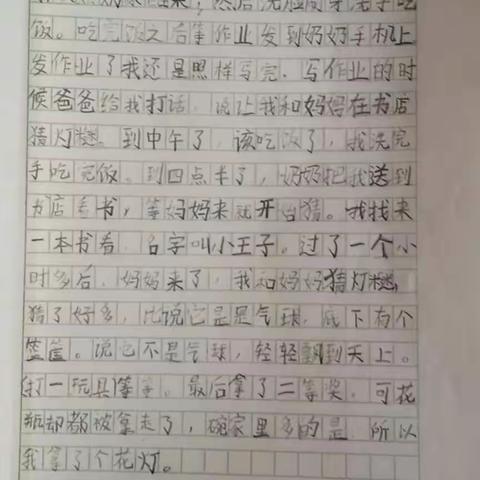 然后洗脸刷牙洗手吃
饭。吃完饭之后等作业发到奶奶手机上
发作业了我还是照样写完.写作业的时
候爸爸给我打话.说让我和妈妈在书店
猜灯谜.到中午了,该吃饭了,我洗完
手吃完饭。到四点半了,奶奶把我送到
书店看书,等妈妈来就开始猜。我找来
一本书看.名字叫小王子。过了一个小
时多后.妈妈来了,我和妈妈猜灯谜.
猜了好多,比说它是是气球,底下有个
篮筐。说它不是气球,轻轻飘到天上。
打一玩具等等。最后拿了二等奖.可花
瓶却都被拿走了,碗家里多的是.所以
我拿了个花灯。